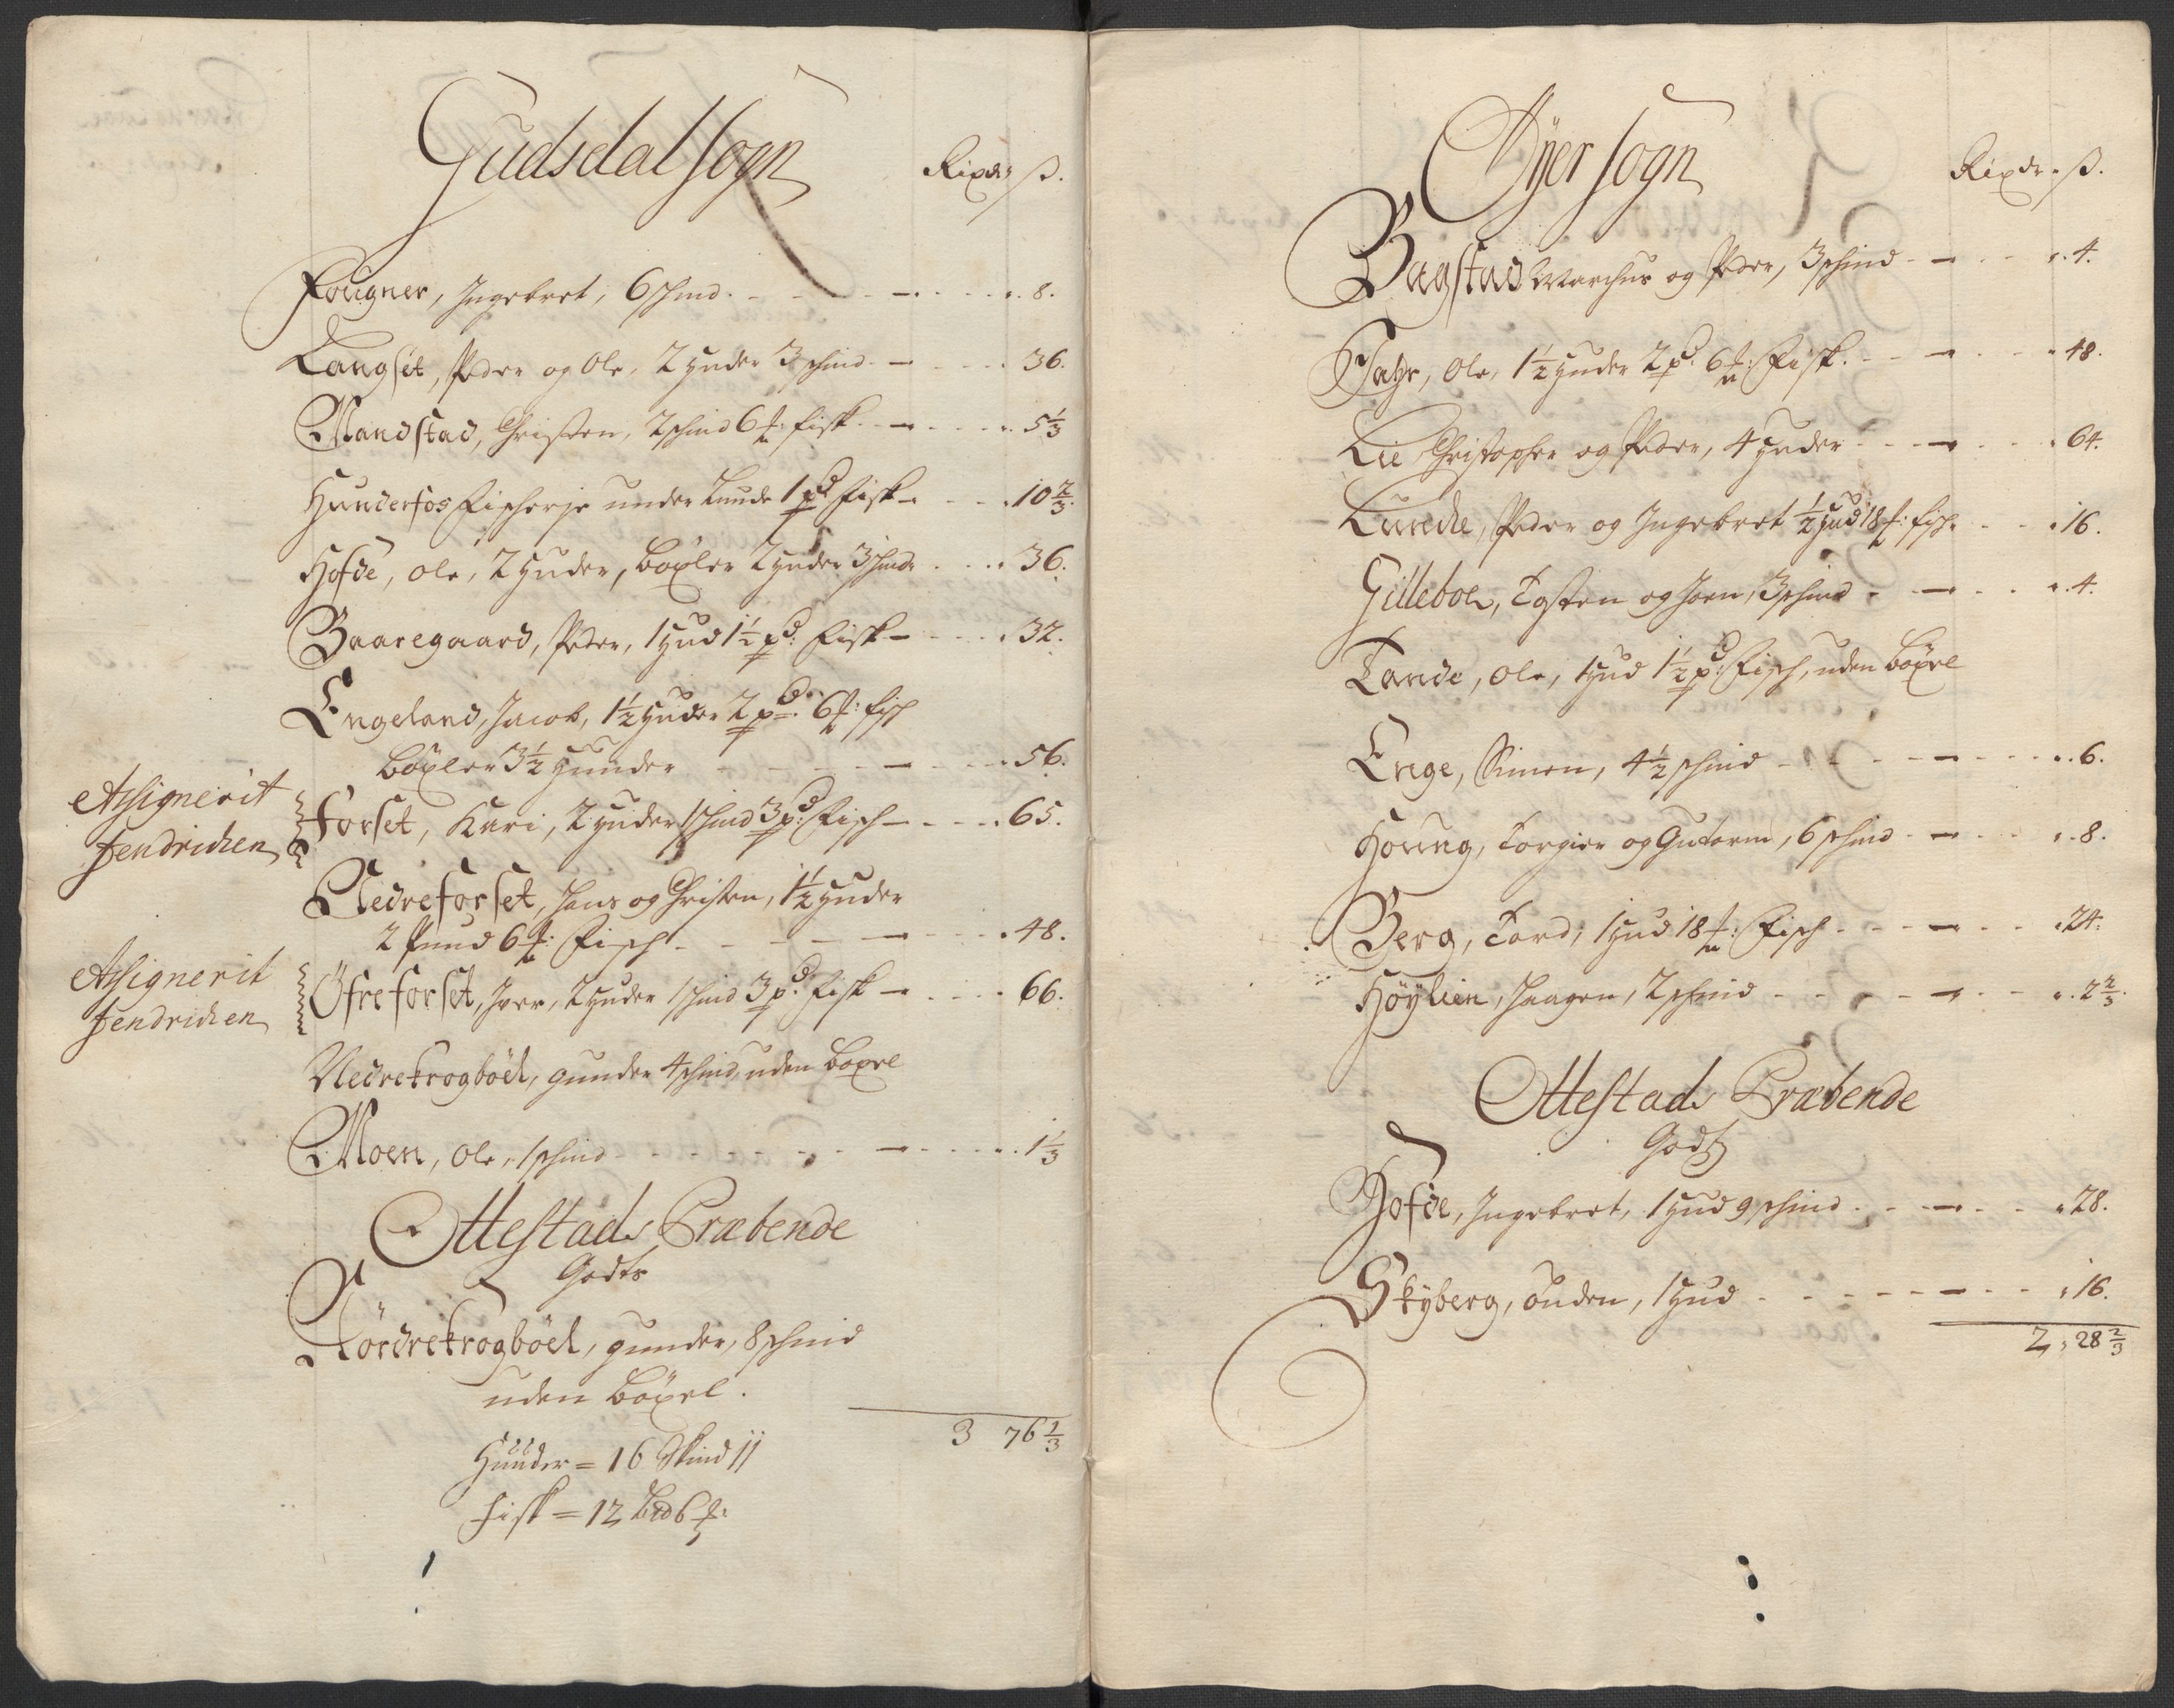 Gudsdal sogn
Rixdr ß.
Fougner, Ingebret, 6 schind . 8.
Langset, Peder og Ole, 2 huder 3 schind 36.
Mandstad, Christen, 2 schind 6 ℔: fisk 5 1/3
Hunderfos Fischerje under Lunde 1 pd fisk 10 2/3.
Hofde, Ole, 2 huder, böxler 2 huder 3 schind 36.
Baaregaard, Peder, 1 hud 1 1/2 pd: Fisk 32.
Engeland, Jacob, 1 1/2 huder 2 pd: 6 ℔: fisch
böxler 3 1/2 hunder 56.
Assignerit
Jendrichen
Forset, Kari, 2 huder 1 schind 3 pd: Fisch 65.
Nedreforset, Hans og Christen, 1 1/2 huder
2 Pund 6 ℔: Fisch 48.
Assignerit
Jendrichen
Öfreforset, Iver, 2 huder 1 schind 3 pd: Fisk 66.
Nedrekrogböel, gunder 4 schind, uden böxel
Moen, Ole, 1 schind 1 1/3
Ottestads Præbende
Godts
Nördrekrogböel, gunder, 8 schind
uden böxel.
3 76 1/3
Huuder = 16 Skind 11
fisk = 12 Bd 6 ℔:
Öÿer sogn
Rixdr. ß.
Bagstad Marchus og Peder, 3 schind 4.
Fahr, Ole, 1 1/2 huder 2 pd: 6 ℔: Fisk. 48.
Lie Christopher og Peder, 4 huder 64.
Lunde, Peder og Ingebret 1/2 hud 18 ℔: fisch 16.
Gilleboe, Tosten og Joen, 3 schind 4.
Tande, Ole, 1 hud 1 1/2 pd: Fisch, uden böxel
Enge, Simen, 4 1/2 schind 6.
Houng, Torgier og Gutorm, 6 schind 8.
Berg, Tord, 1 hud 18 ℔: Fisch 24.
Höÿlien, Haagen, 2 schind 2 2/3.
Ottestads Præbende
Godts
Hofde, Ingebret, 1 hud 9 schind 28.
Skyberg, Ouden, 1 hud 16.
2, 28 2/3